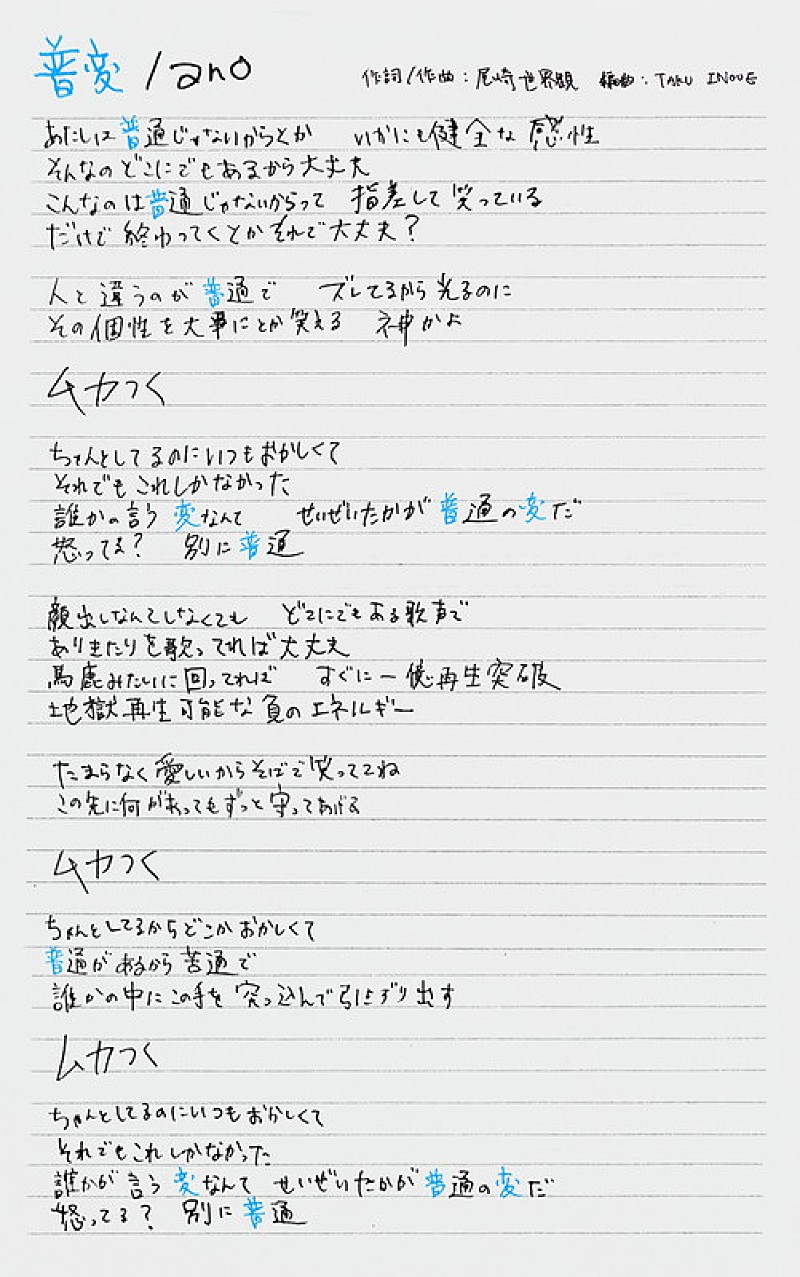 普変/ano 作詞/作曲:尾崎世界観 編曲:TAKU INOUE
あたしは普通じゃないからとか いかにも健全な感性
そんなのどこにでもあるから大丈夫
こんなのは普通じゃないからって 指差して笑っている
だけで終わってくとかそれで大丈夫?
人と違うのが普通で ズレてるから光るのに
その個性を大事にとか笑える 神かよ
ムカつく
ちゃんとしてるのにいつもおかしくて
それでもこれしかなかった
誰かの言う変なんて せいぜいたかが普通の変だ
怒ってる? 別に普通
顔出しなんてしなくても どこにでもある歌声で
ありきたりを歌ってれば大丈夫
馬鹿みたいに回ってれば すぐに一億再生突破
地獄再生可能な負のエネルギー
たまらなく愛しいからそばで笑っててね
この先に何があってもずっと守ってあげる
ムカつく
ちゃんとしてるからどこかおかしくて
普通があるから苦通で
誰かの中にこの手を突っ込んで引きずり出す
ムカつく
ちゃんとしてるのにいつもおかしくて
それでもこれしかなかった
誰かが言う変なんて せいぜいたかが普通の変だ
怒ってる? 別に普通